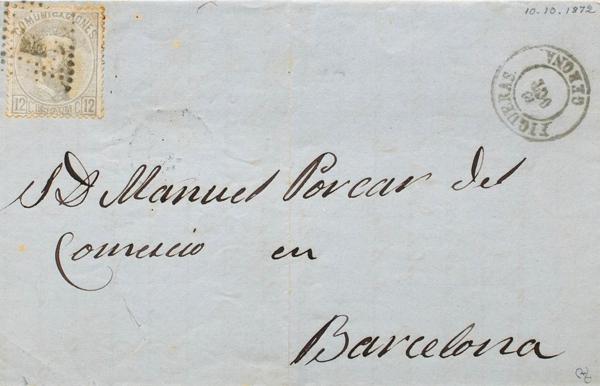 10.10.1872
COMUNICACIONES
12 C 12
FIGUERAS.
GERONA
OCT
S D Manuel Porcar del
Comercio en
Barcelona